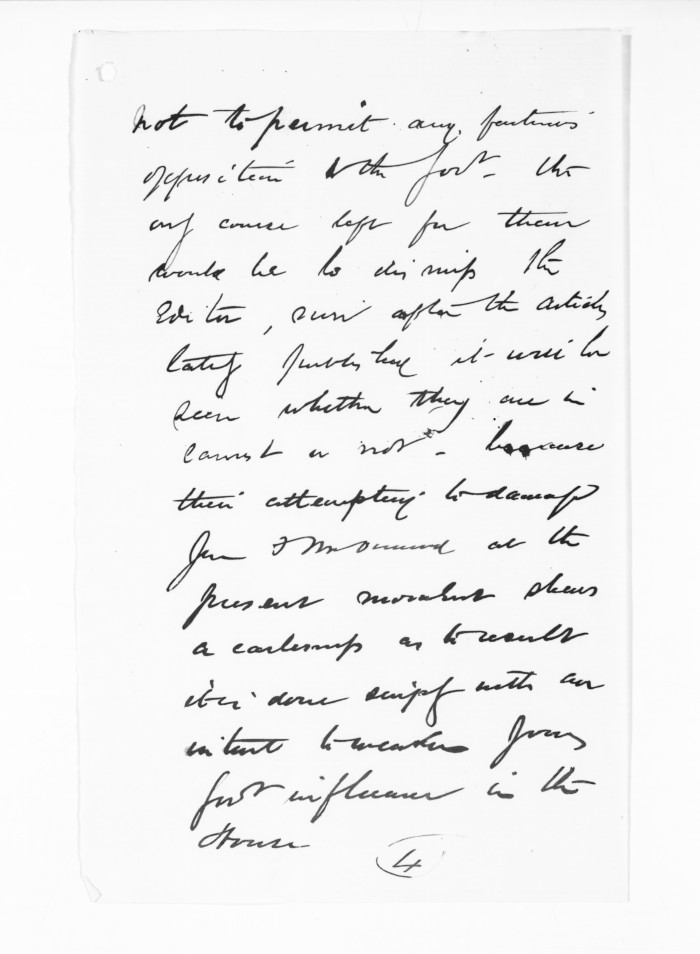 not to permit any factious
opposition to the Govt - the
only course left for them
would be to dismiss the
Editor, even after the articles
lately published it will be
seen whether they are in
earnest or not - because
their attempting to damage
you & McDonnell at the
present moment shews
a carelessness as to result
it is done simply with an
intent to weaken your
Govt influence in the
House
4